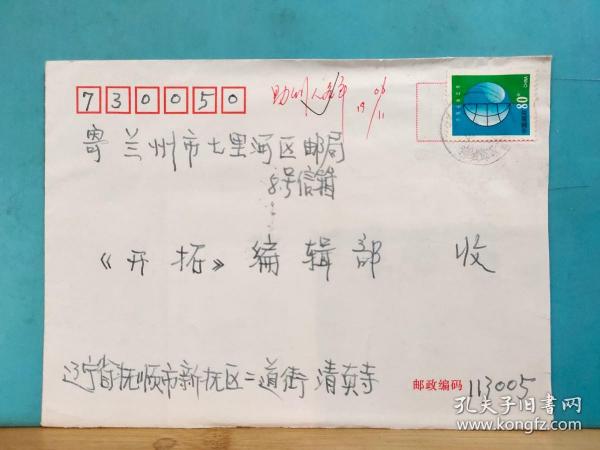 730050
寄 兰州市七里河区邮局
8号信箱
《开拓》编辑部 收
辽宁省抚顺市新抚区二道街 清真寺
邮政编码 113005
80
孔夫子旧书网
www.kongfz.com